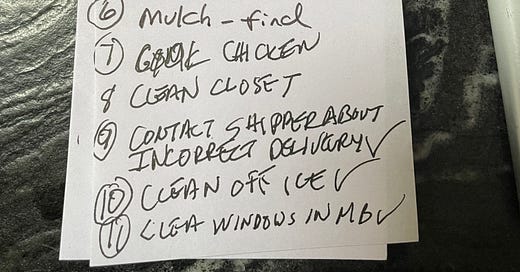 6 Mulch - find
7 COOK CHICKEN
8 CLEAN CLOSET
9 CONTACT SHIPPER ABOUT
INCORRECT DELIVERY ✓
10 CLEAN OFF ICE ✓
11 CLEA WINDOWS IN MB ✓